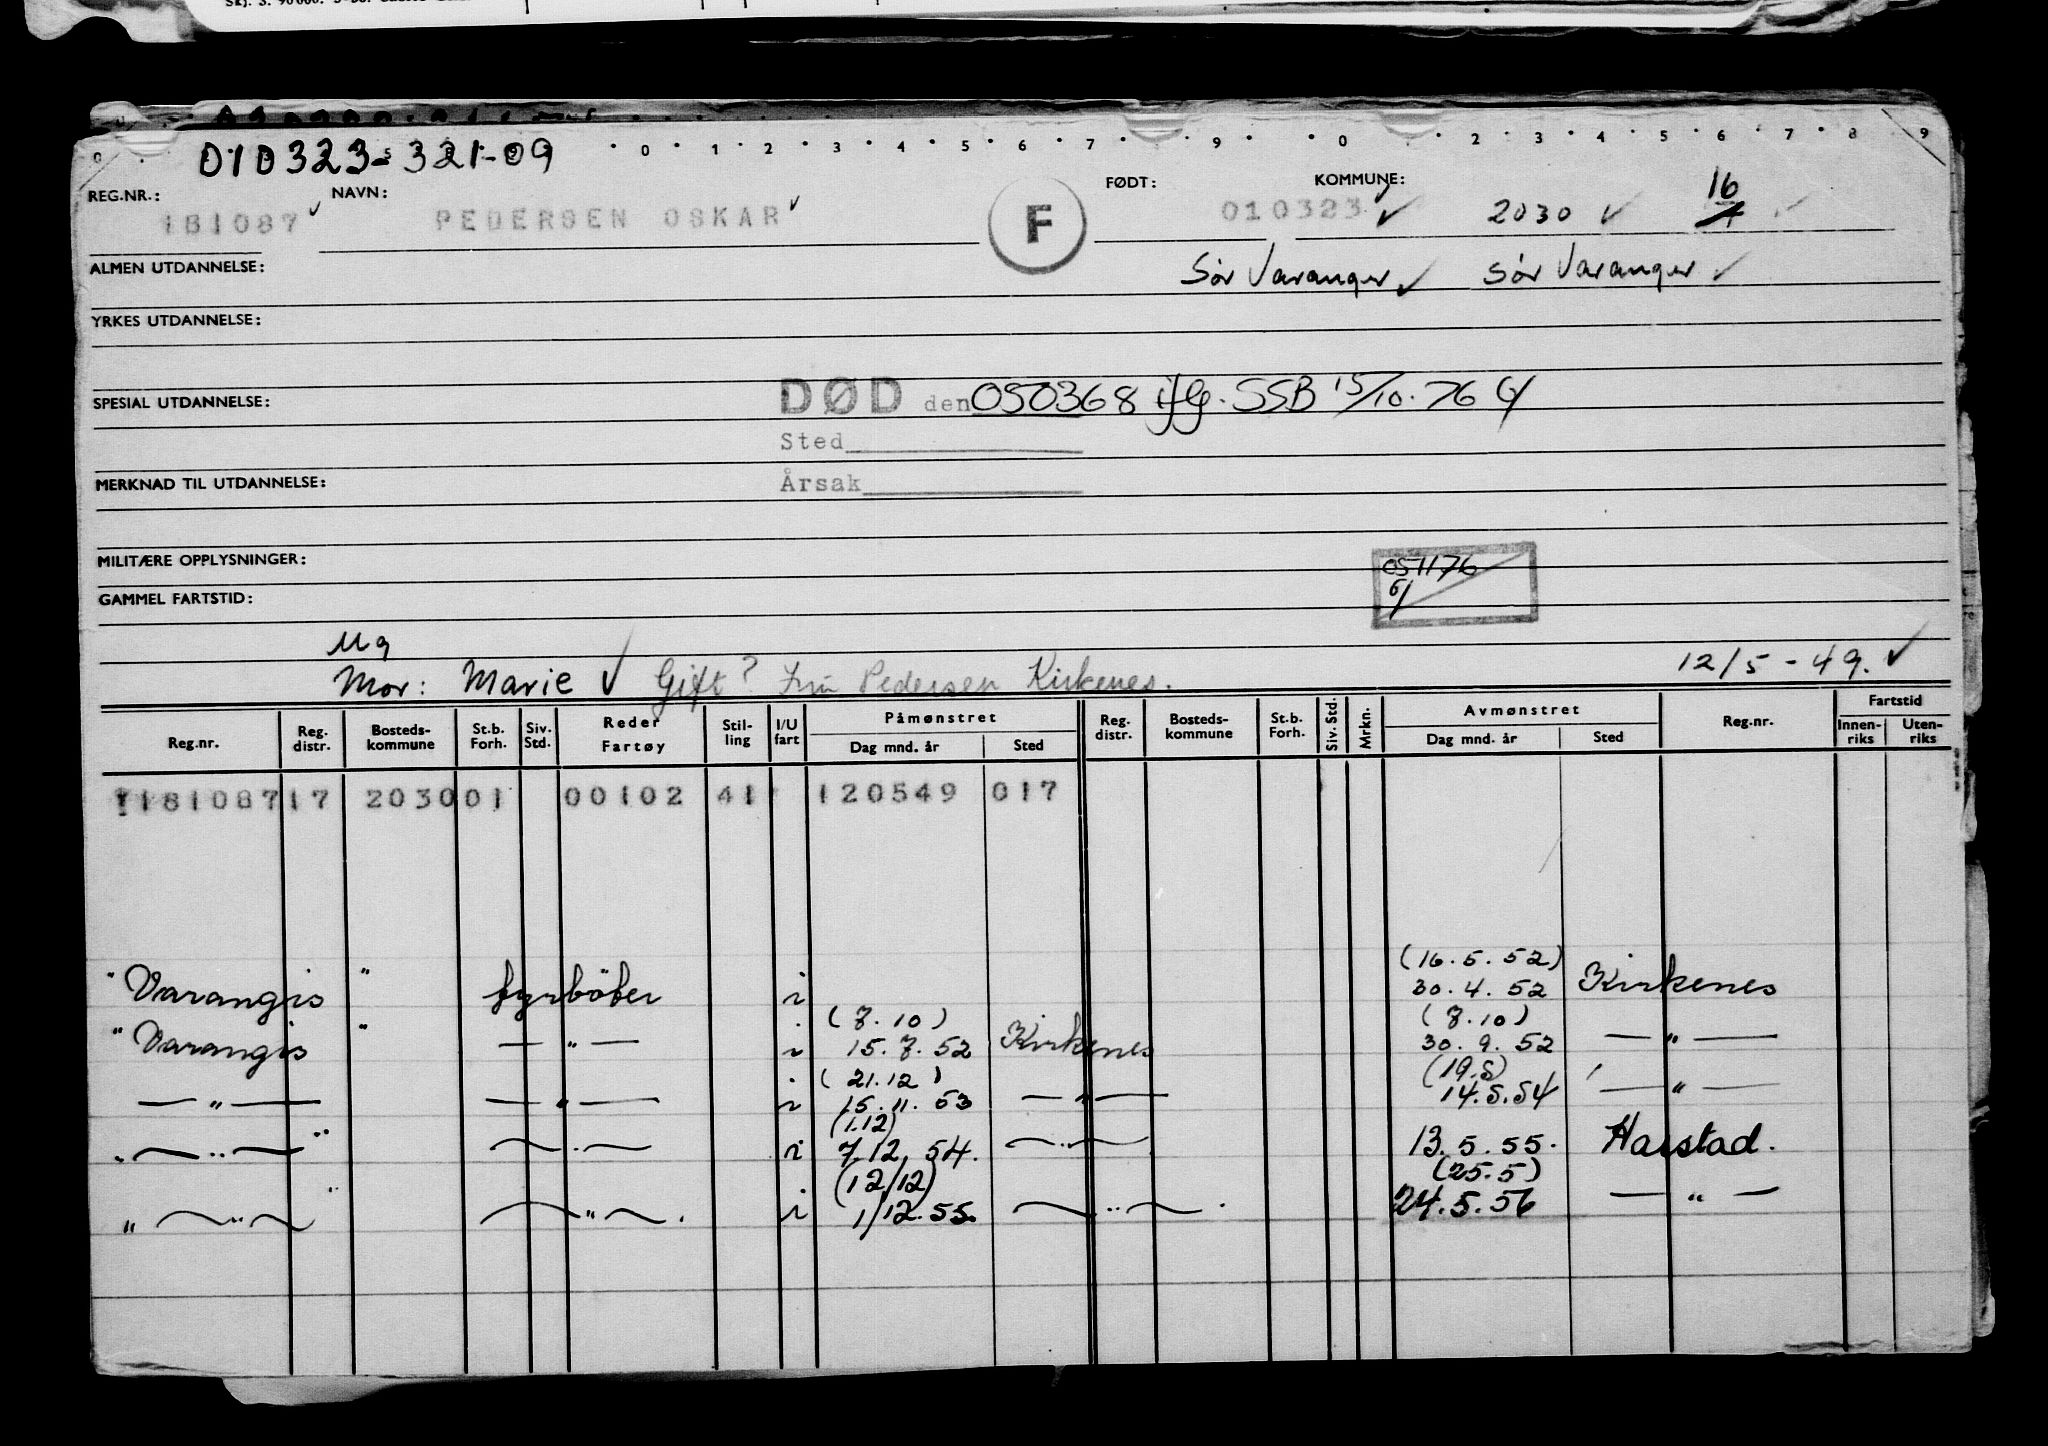 010323-321-09
0 1 2 3 4 5 6 7 9 0 2 3 4 5 6 7 8 9
REG.NR.: NAVN: FØDT: KOMMUNE: 16
181087 PEDERSEN OSKAR F 010323 2030
ALMEN UTDANNELSE: Sør Varanger Sør Varanger
YRKES UTDANNELSE:
SPESIAL UTDANNELSE: DØD den 050368 ifg. SSB 15/10.76
Sted
MERKNAD TIL UTDANNELSE: Årsak
MILITÆRE OPPLYSNINGER: 051176
GAMMEL FARTSTID:
Ug
Mor: Marie Gift? Fru Pedersen Kirkenes. 12/5-49.
Reg.nr. Reg. distr. Bosteds-kommune St.b. Forh. Siv. Std. Reder Fartøy Stil-ling I/U fart Påmønstret Dag mnd. år Sted Reg. distr. Bosteds-kommune St.b. Forh. Siv. Std. Mrkn. Avmønstret Dag mnd. år Sted Reg.nr. Fartstid Innen-riks Uten-riks
118108717 203001 00102 41 120549 017
(16.5.52)
" Varangis " fyrbøter i 30.4.52 Kirkenes
(7.10) (7.10)
" Varangis " — " — i 15.7.52 Kirkenes 30.9.52 — " —
(21.12) (19.5)
— " — — " — i 15.11.53 — " — 14.5.54 — " —
(1.12)
" — " — " — " — i 7.12.54. — " — 13.5.55. Harstad.
(12/12) (25.5)
" — " — " — " — . i 1/12.55. — " — . 24.5.56 — " —